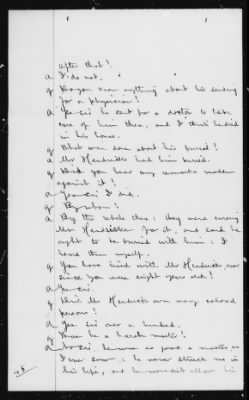 after that?
A I do not.
Q Do you know anything about his sending
for a physician?
A Yes sir he sent for a doctor to take
care of him there, and I think he died
in his house.
Q What was done about his burial?
A Mr Hendricks had him buried.
Q Did you hear any remarks made
against it?
A Yes sir I did.
Q By whom?
A By the rebels there: they were cursing
Mr Hendricks for it, and said he
ought to be buried with him: I
heard them myself.
Q You have lived with Mr Hendricks ever
since you were eight years old?
A Yes sir.
Q Did Mr Hendricks own many colored
persons?
A Yes sir over a hundred.
Q Was he a harsh master?
A No sir he was as good a master as
I ever saw: he never struck me in
his life, and he wouldn't allow his